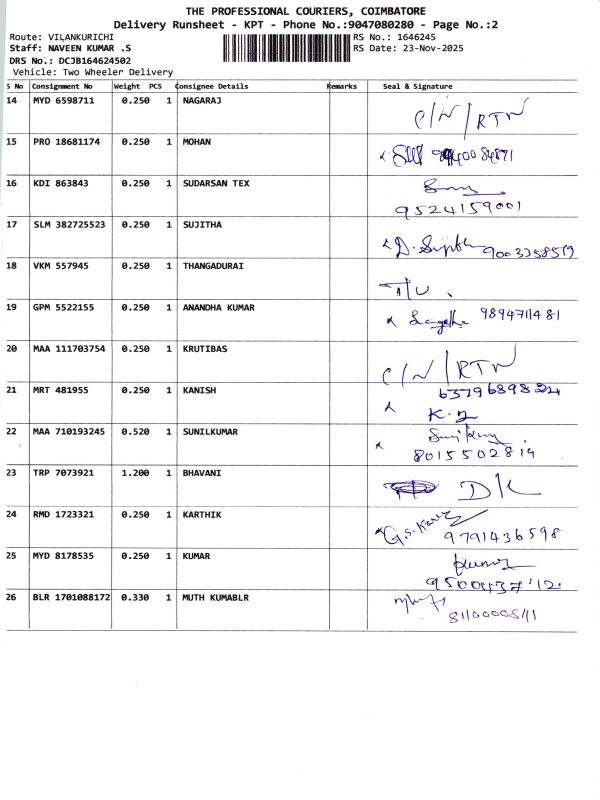 THE PROFESSIONAL COURIERS, COIMBATORE
Delivery Runsheet - KPT - Phone No.:9047080280 - Page No.:2
Route: VILANKURICHI
RS No.: 1646245
Staff: NAVEEN KUMAR .S
RS Date: 23-Nov-2025
DRS No.: DCJB164624502
Vehicle: Two Wheeler Delivery
S No Consignment No Weight PCS Consignee Details Remarks Seal & Signature
14 MYD 6598711 0.250 1 NAGARAJ C/N/RTN
15 PRO 18681174 0.250 1 MOHAN
16 KDI 863843 0.250 1 SUDARSAN TEX
9524159001
17 SLM 382725523 0.250 1 SUJITHA D. Sujitha
18 VKM 557945 0.250 1 THANGADURAI
19 GPM 5522155 0.250 1 ANANDHA KUMAR 9894711481
20 MAA 111703754 0.250 1 KRUTIBAS C/N/RTN
21 MRT 481955 0.250 1 KANISH
22 MAA 710193245 0.520 1 SUNILKUMAR
8015502819
23 TRP 7073921 1.200 1 BHAVANI DK
24 RMD 1723321 0.250 1 KARTHIK
9791436598
25 MYD 8178535 0.250 1 KUMAR Kumar
26 BLR 1701088172 0.330 1 MUTH KUMABLR